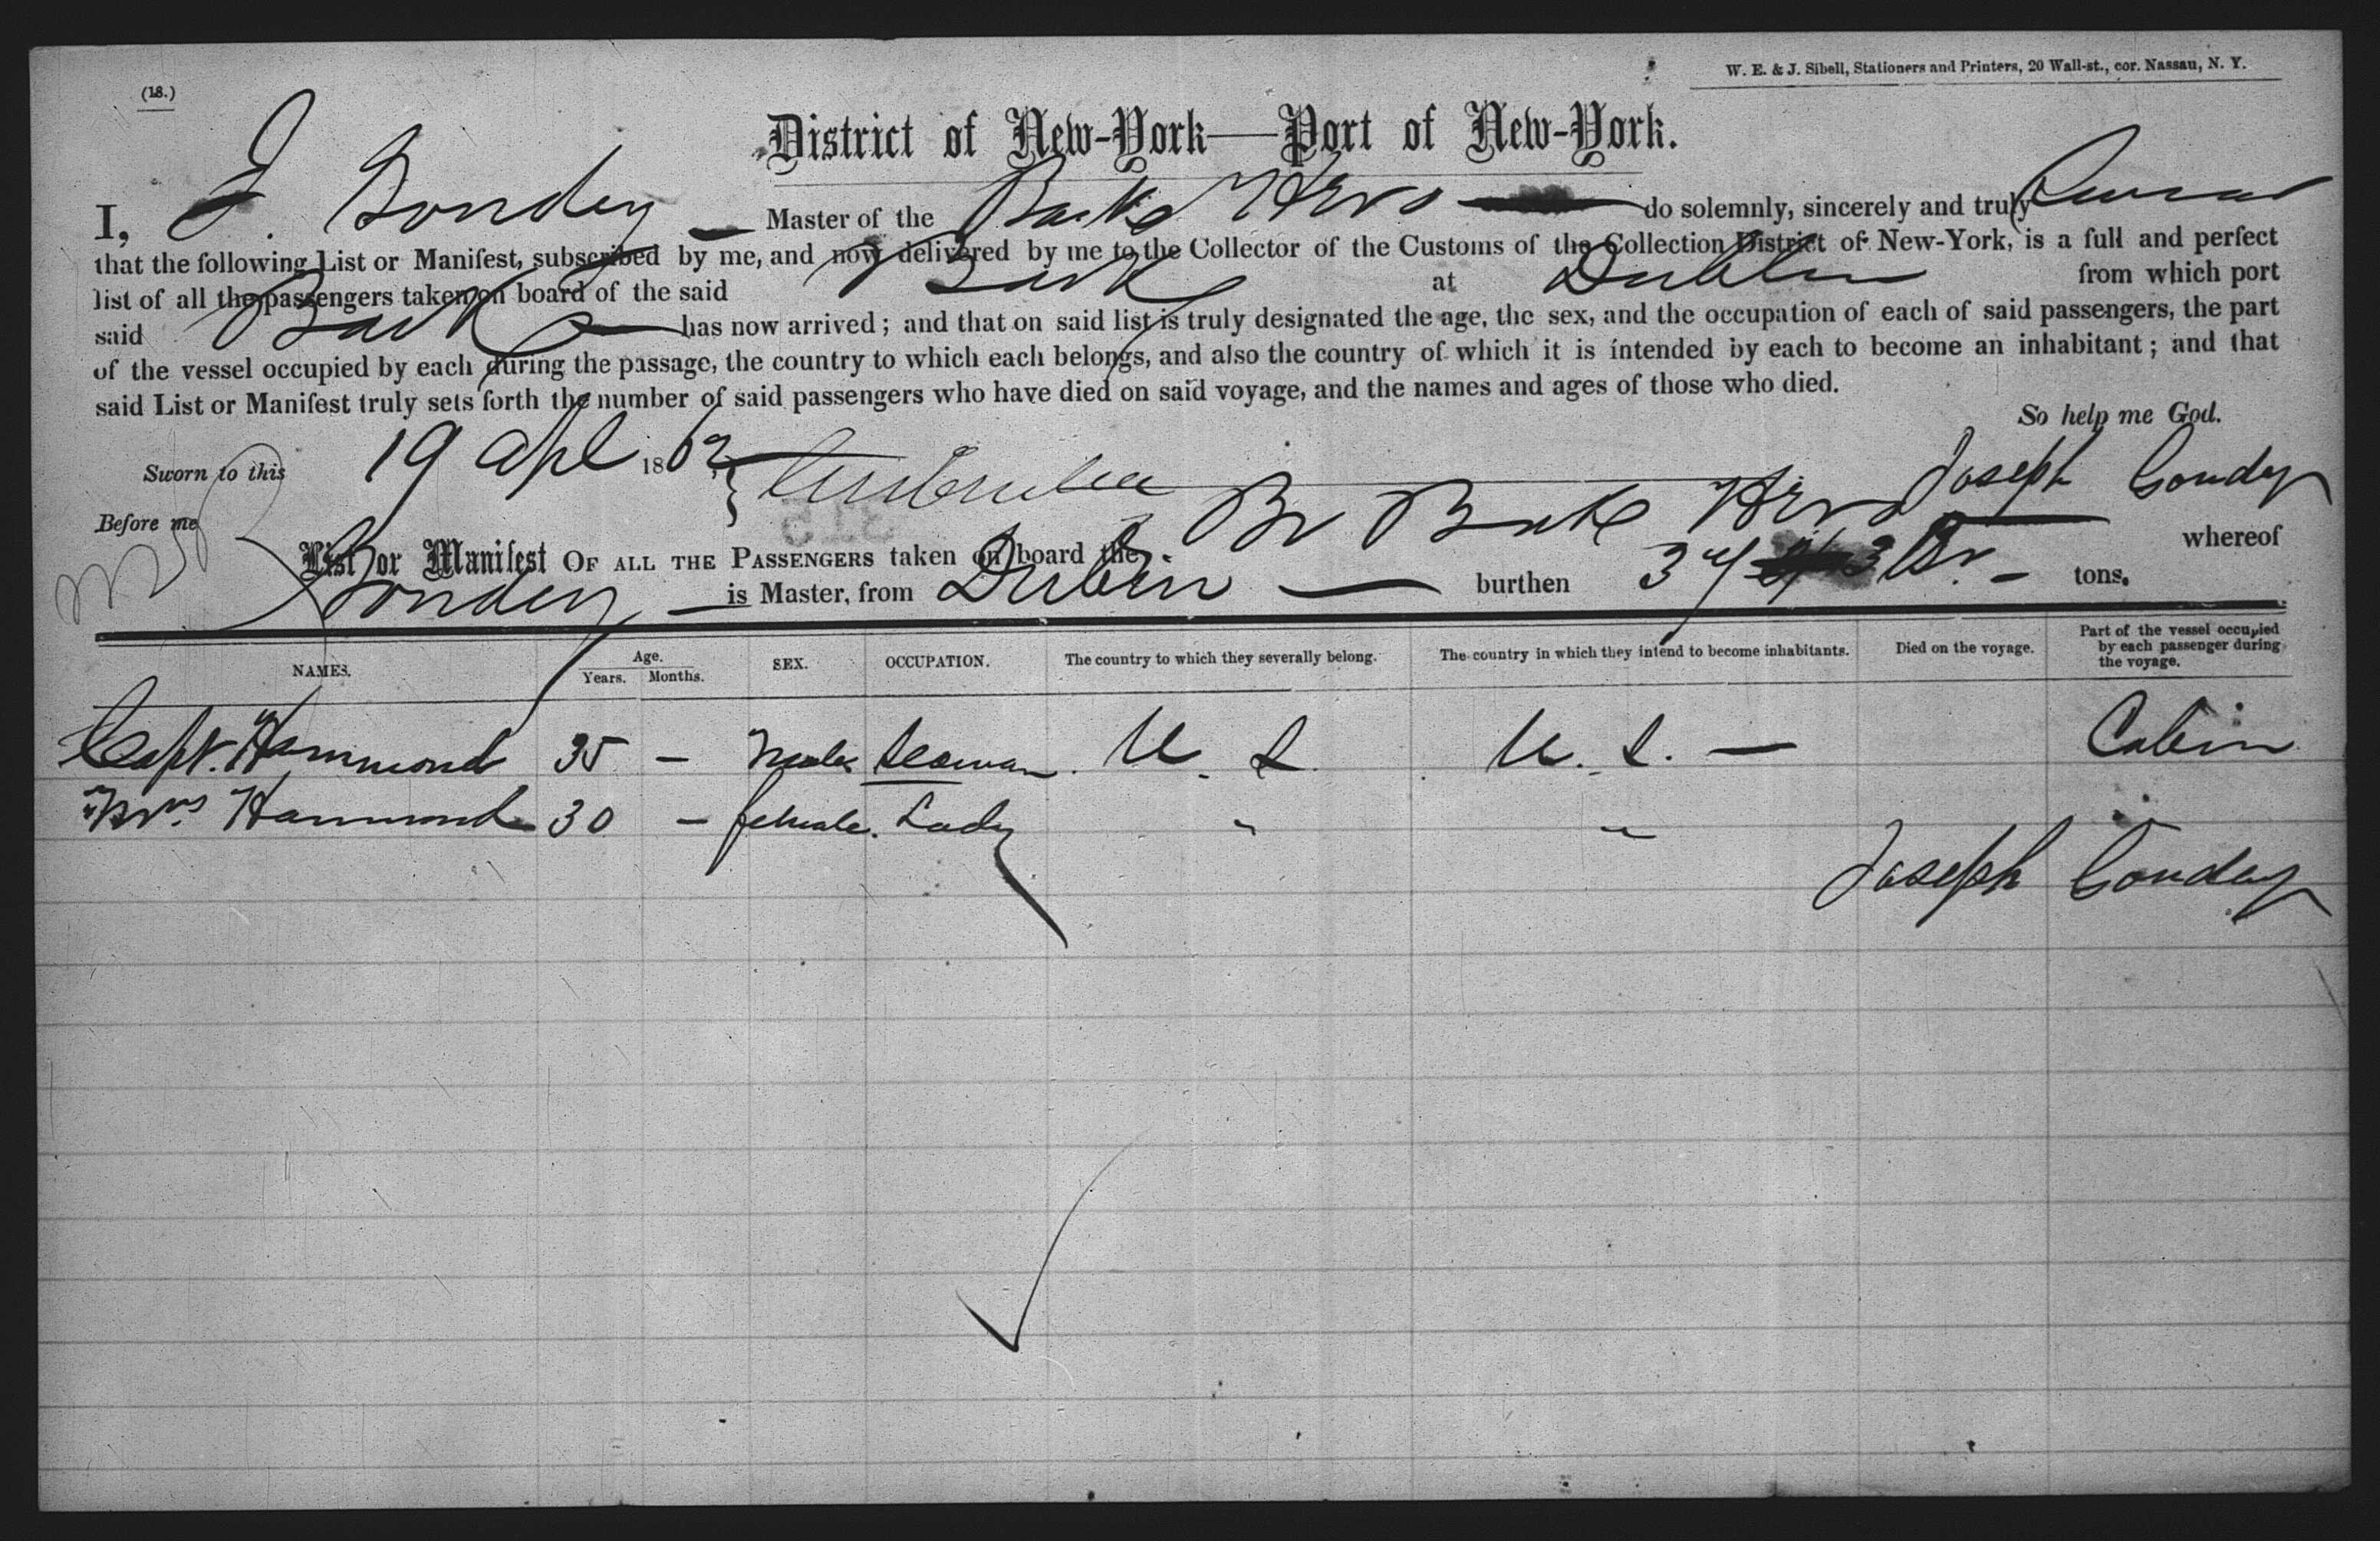 (18.)
W. E. & J. Sibell, Stationers and Printers, 20 Wall-st., cor. Nassau, N. Y.
District of New-York—Port of New-York.
I, J. Gondey — Master of the Bark Hero — do solemnly, sincerely and truly swear
that the following List or Manifest, subscribed by me, and now delivered by me to the Collector of the Customs of the Collection District of New-York, is a full and perfect
list of all the passengers taken on board of the said Bark at Dublin from which port
said Bark — has now arrived; and that on said list is truly designated the age, the sex, and the occupation of each of said passengers, the part
of the vessel occupied by each during the passage, the country to which each belongs, and also the country of which it is intended by each to become an inhabitant; and that
said List or Manifest truly sets forth the number of said passengers who have died on said voyage, and the names and ages of those who died.
So help me God.
Sworn to this 19 Apl 1862 Joseph Goudey
Before me
List or Manifest OF ALL THE PASSENGERS taken on board the Br Bark Hero whereof
Gondey — is Master, from Dublin — burthen tons.
NAMES. Age. Years. Months. SEX. OCCUPATION. The country to which they severally belong. The country in which they intend to become inhabitants. Died on the voyage. Part of the vessel occupied by each passenger during the voyage.
Capt. Hammond 35 — Male Seaman. U. S. U. S. — Cabin
Mrs. Hammond 30 — female. Lady " "
Joseph Goudey